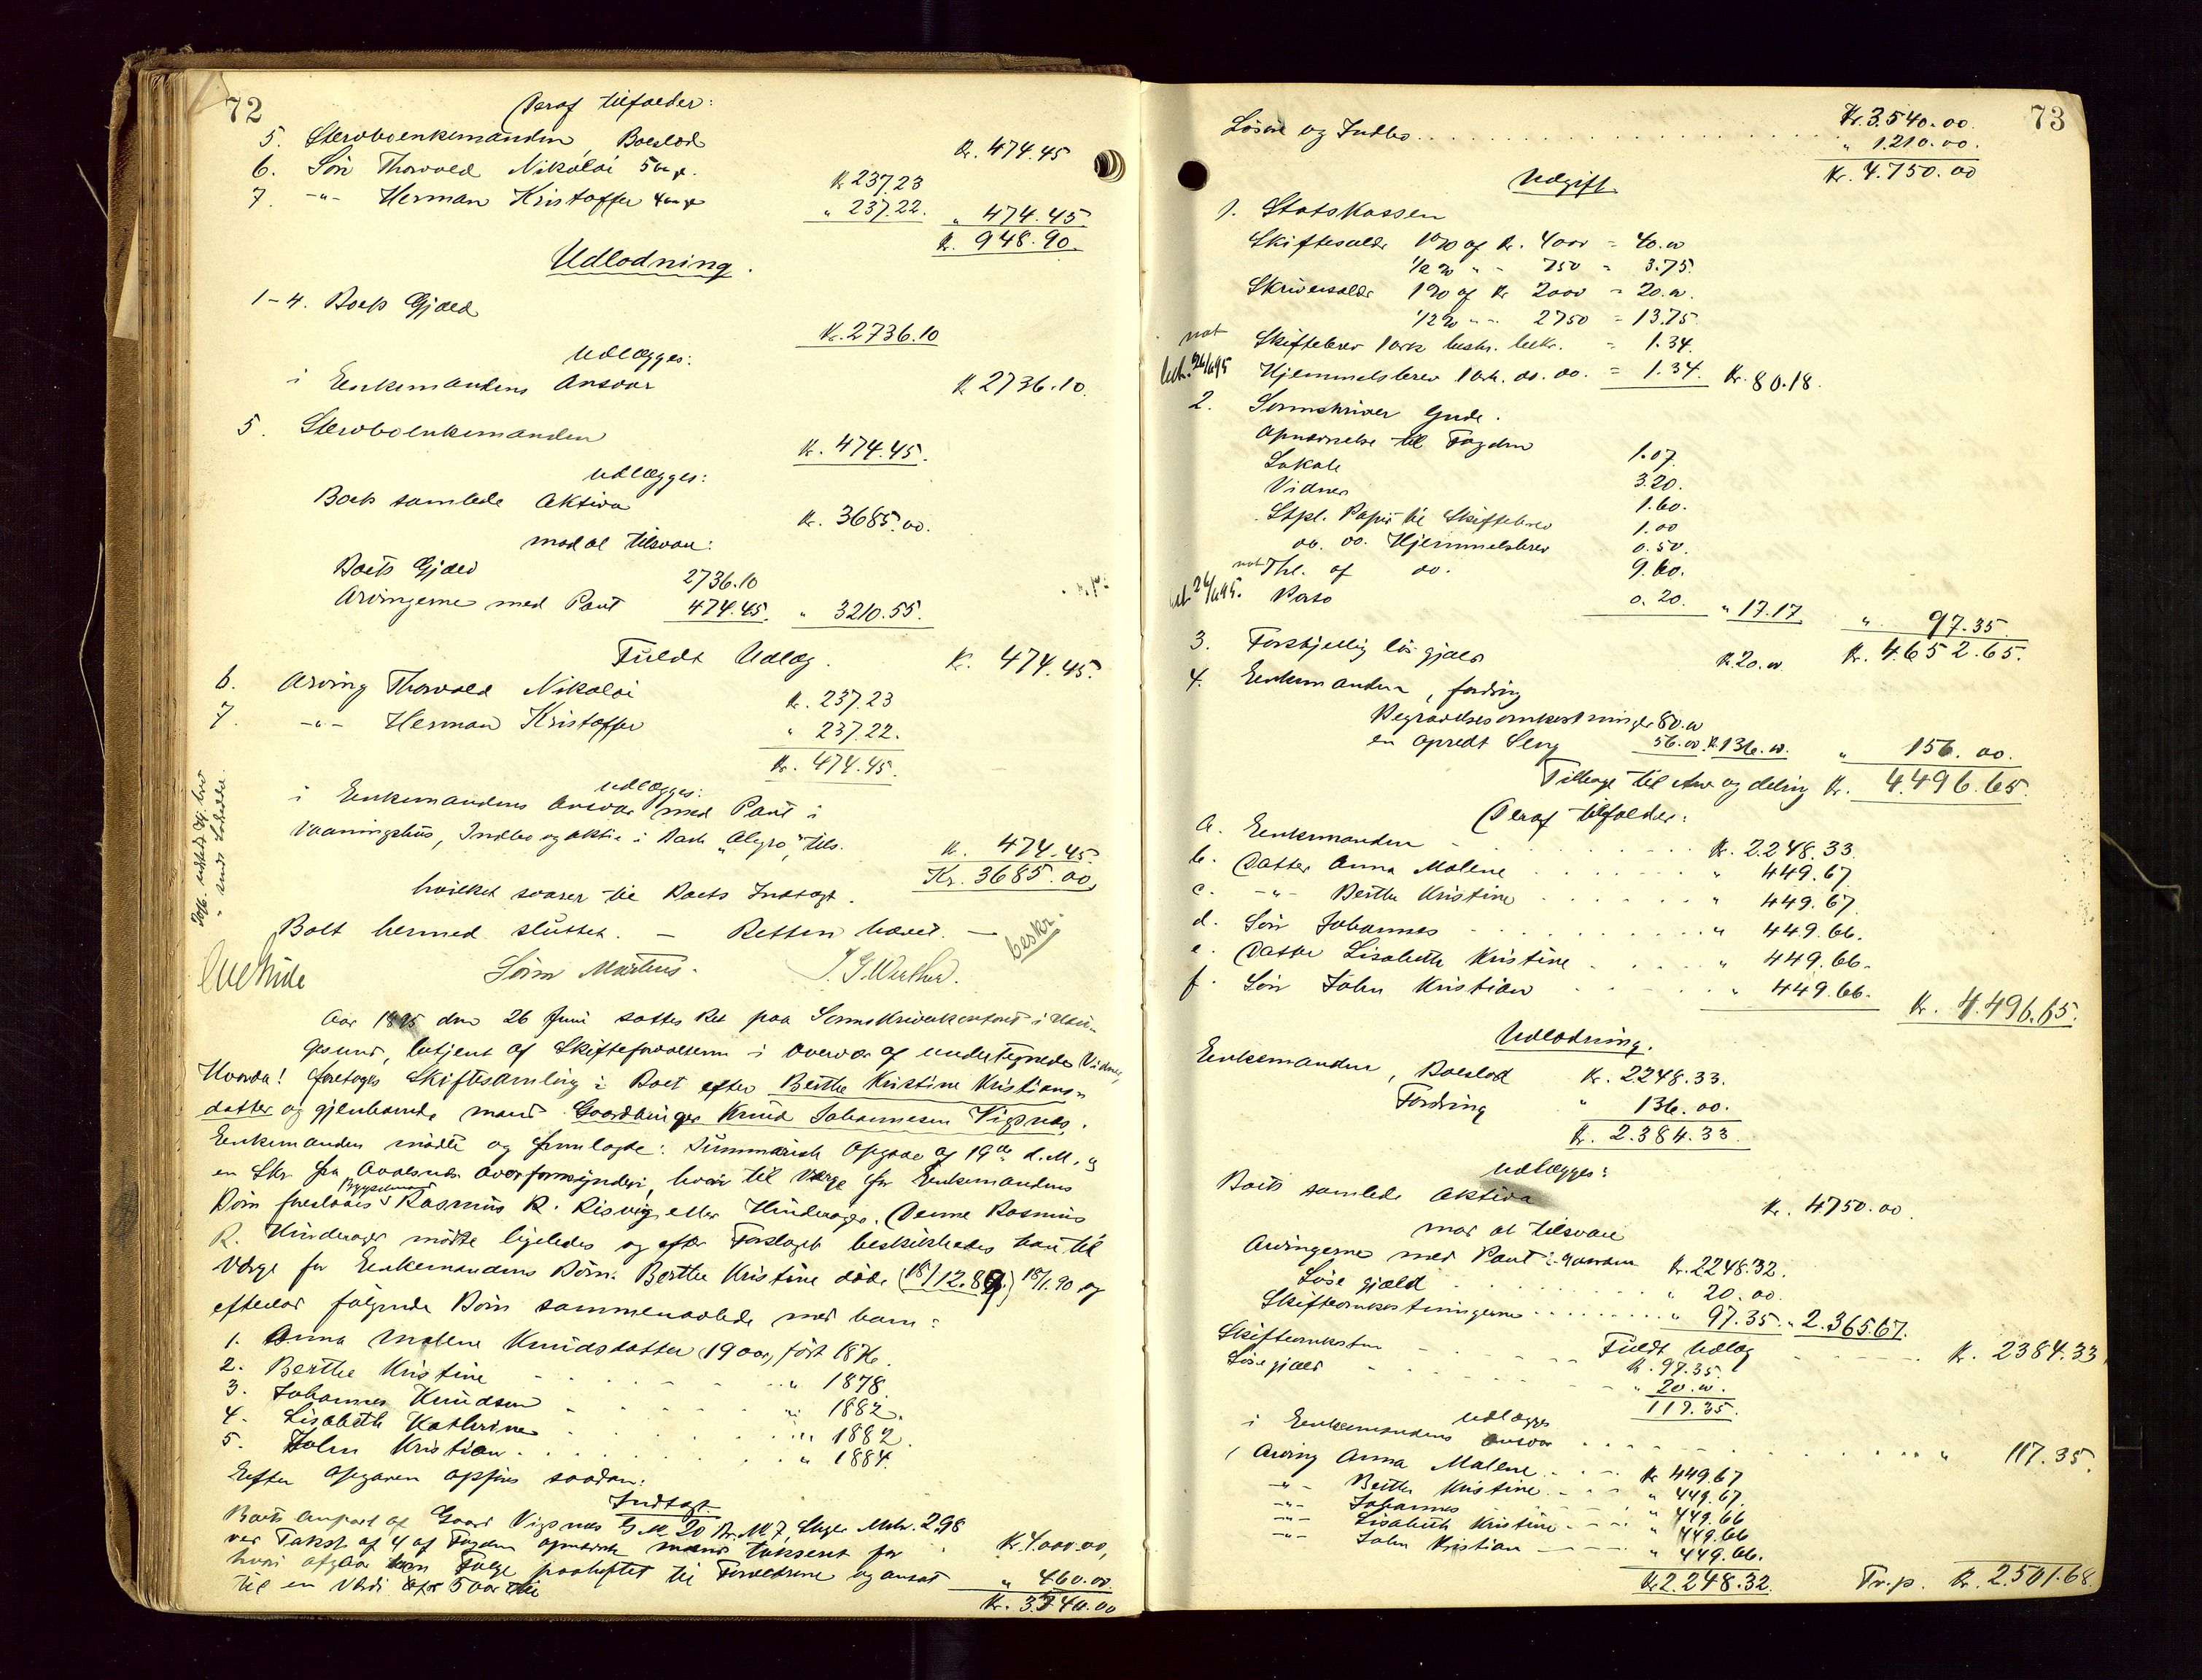 72
Deraf tilfalder:
5. Stervboenkemanden, Boeslod Kr. 474.45
6. Søn Thorvald Nikolai 5 Kr 237.23
7. -"- Herman Kristoffer " 237.22. " 474.45
Kr. 948.90
Udlodning.
1-4. Boets Gjæld Kr. 2736.10
udlægges:
i Enkemandens Ansvar Kr 2736.10.
5. Stervboenkemanden Kr. 474.45.
udlægges:
Boets samlede Aktiva Kr. 3685.00.
mod at tilsvare:
Boets Gjæld 2736.10
Arvingerne med Pant 474.45. " 3210.55.
Fuldt Udlæg. Kr. 474.45.
6. Arving Thorvald Nikolai Kr. 237.23
7. -"- Herman Kristoffer " 237.22.
Kr. 474.45.
udlægges:
i Enkemandens Ansvar med Pant i
Vaaningshus, Indbo og Aktie i Bark "Alegro", tils. Kr. 474.45.
Kr. 3685.00,
hvilket svarer til Boets Indtægt.
Boet hermed sluttet. — Retten hævet. —
beskr.
Søren Mortens. J. G. Werther.
Aar 1895 den 26 Juni sattes Ret paa Sorenskriverkontoret i Hau-
gesund, betjent af Skifteforvalteren i Overvær af undertegnede Vidner,
Hvorda! foretoges Skiftesamling i Boet efter Berthe Kristine Kristians-
datter og gjenlevende mand Gaardbruger Knud Johannesen Vigsnes.
Enkemanden mødte og fremlagde: Summarisk Opgave af 19de d.M. og
en Skr. fra Avaldsnes Overformynderi, hvori til Værge for Enkemandens
Børn foreslaaes Rasmus R. Risvig eller Hinderager. Denne Rasmus
R. Hinderager mødte ligeledes og efter Forslaget beskikkedes han til
Værge for Enkemandens Børn. Berthe Kristine døde (18/12.89.) 18/1.90 og
efterlod følgende Børn sammenavlede med ham:
1. Anna Malene Knudsdatter 19 aar, født 1876.
2. Berthe Kristine - - - - " 1878.
3. Johannes Knudsen - - - " 1882.
4. Lisabeth Kathrine - - - " 1882.
5. John Kristian - - - - " 1884.
Efter Opgaven opføres saadan:
Indtægt
Boets anpart af Gaard Vigsnes G.No 20 Br.No 7, Skyld Mark 2.98
ved Takst af 4 af Fogden opnævnte mænd taxeret for Kr. 4000.00,
hvori afgaar Følge paaheftet til Forældrene og ansat
til en Værdi for 5 aar til " 460.00.
Kr. 3.540.00
73
Kr. 3.540.00.
Løsøre og Indbo " 1.210.00.
Kr. 4.750.00
Udgift.
1. Statskassen
Skiftesalær 1% af Kr. 4000 = 40.00
1/2% " - 750 = 3.75.
Skriversalær 1% af Kr 2000 = 20.00.
1/2% " - 2750 = 13.75.
not Skiftebrev 1 ark beskr. bekr. = 1.34.
bet. 26/6 95 Hjemmelsbrev 1 ark. do. do. = 1.34. Kr. 80.18.
2. Sorenskriver Gude.
Opnævnelse til Fogden 1.07.
Lokale 3.20.
Vidner 1.60.
Stpl. Papir til Skiftebrev 1.00
do. do. Hjemmelsbrev 0.50.
not Thl. af do. 9.60.
bet 26/6 95. Porto 0.20. " 17.17. " 97.35.
Kr. 4.652.65.
3. Forskjellig løs gjæld Kr. 20.00
4. Enkemanden, fordring
Begravelsesomkostninger 80.00
en opredt Seng 56.00. Kr. 136.00. " 156.00.
Tilbage til Arv og deling Kr. 4.496.65.
Deraf tilfalder:
a. Enkemanden Kr. 2.248.33.
b. Datter Anna Malene " 449.67.
c. -"- Berthe Kristine " 449.67.
d. Søn Johannes " 449.66.
e. Datter Lisabeth Kristine " 449.66.
f. Søn John Kristian " 449.66. Kr. 4.496.65.
Udlodning.
Enkemanden, Boeslod Kr. 2248.33.
Fordring " 136.00.
Kr. 2.384.33.
udlægges:
Boets samlede Aktiva Kr. 4750.00.
mod at tilsvare
Arvingerne med Pant i Gaarden Kr. 2248.32.
Løse gjæld " 20.00.
Skifteomkostningerne " 97.35. " 2.365.67.
Fuldt Udlæg Kr. 2384.33,
Skifteomkostn Kr. 97.35.
Løse gjæld " 20.00.
117.35.
udlægges
i Enkemandens Ansvar " 117.35.
Arving Anna Malene Kr 449.67
-"- Berthe Kristine " 449.67.
-"- Johannes " 449.66
-"- Lisabeth Kristine " 449.66
-"- John Kristian " 449.66.
Kr 2.248.32. Tr.p. Kr. 2.501.68